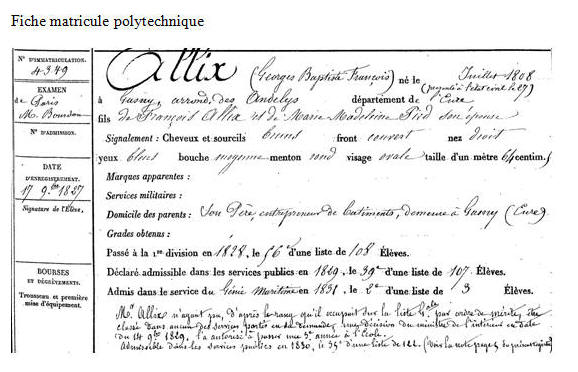 Fiche matricule polytechnique
N° D'IMMATRICULATION.
4349
EXAMEN
de Paris
M. Bourdon
N° D'ADMISSION.
DATE
D'ENREGISTREMENT.
17 9bre 1827
Signature de l'Élève.
BOURSES
ET DÉGRÈVEMENTS.
Trousseau et première
mise d'équipement.
Allix (Georges Baptiste François) né le Juillet 1808
(présenté à l'état civil le 27)
à Gasny, arrond. des Andelys département de l'Eure
fils de François Allix et de Marie Madeleine Pied son épouse
Signalement : Cheveux et sourcils bruns front couvert nez droit
yeux bleus bouche moyenne menton rond visage ovale taille d'un mètre 64 centim.
Marques apparentes :
Services militaires :
Domicile des parents : Son Père, entrepreneur de batiments, demeure à Gasny (Eure)
Grades obtenus :
Passé à la 1re division en 1828, le 56e d'une liste de 108 Élèves.
Déclaré admissible dans les services publics en 1829, le 39e d'une liste de 107 Élèves.
Admis dans le service du Génie Maritime en 1831, le 2e d'une liste de 3 Élèves.
Mr Allix n'ayant pu, d'après le rang qu'il occupait sur la liste gale par ordre de mérite, être
classé dans aucun des services portés en sa demande, une décision du ministre de l'intérieur en date
du 14 9bre 1829, l'a autorisé à passer une 3e année à l'Ecole.
Admissible dans les services publics en 1830, le 35e d'une liste de 122. (Voir la note page 5 du